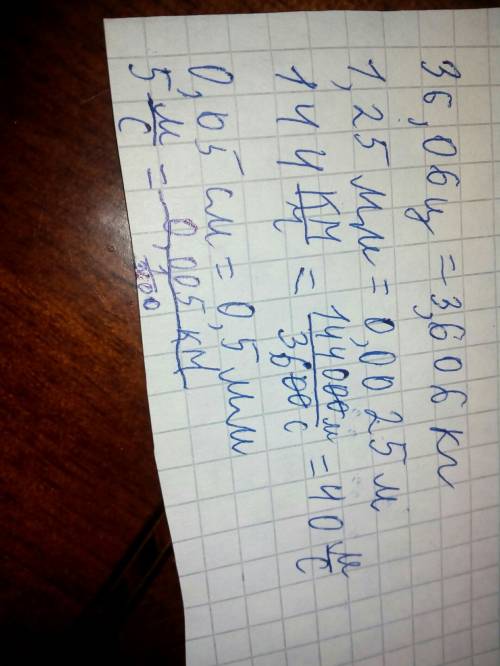 36,06ц = 3,606 кг
1,25 мм = 0,0025 м
144 км/ч = 144000м/3600с = 40 м/с
0,05 см = 0,5 мм
5 м/с = 0,005 км/3600